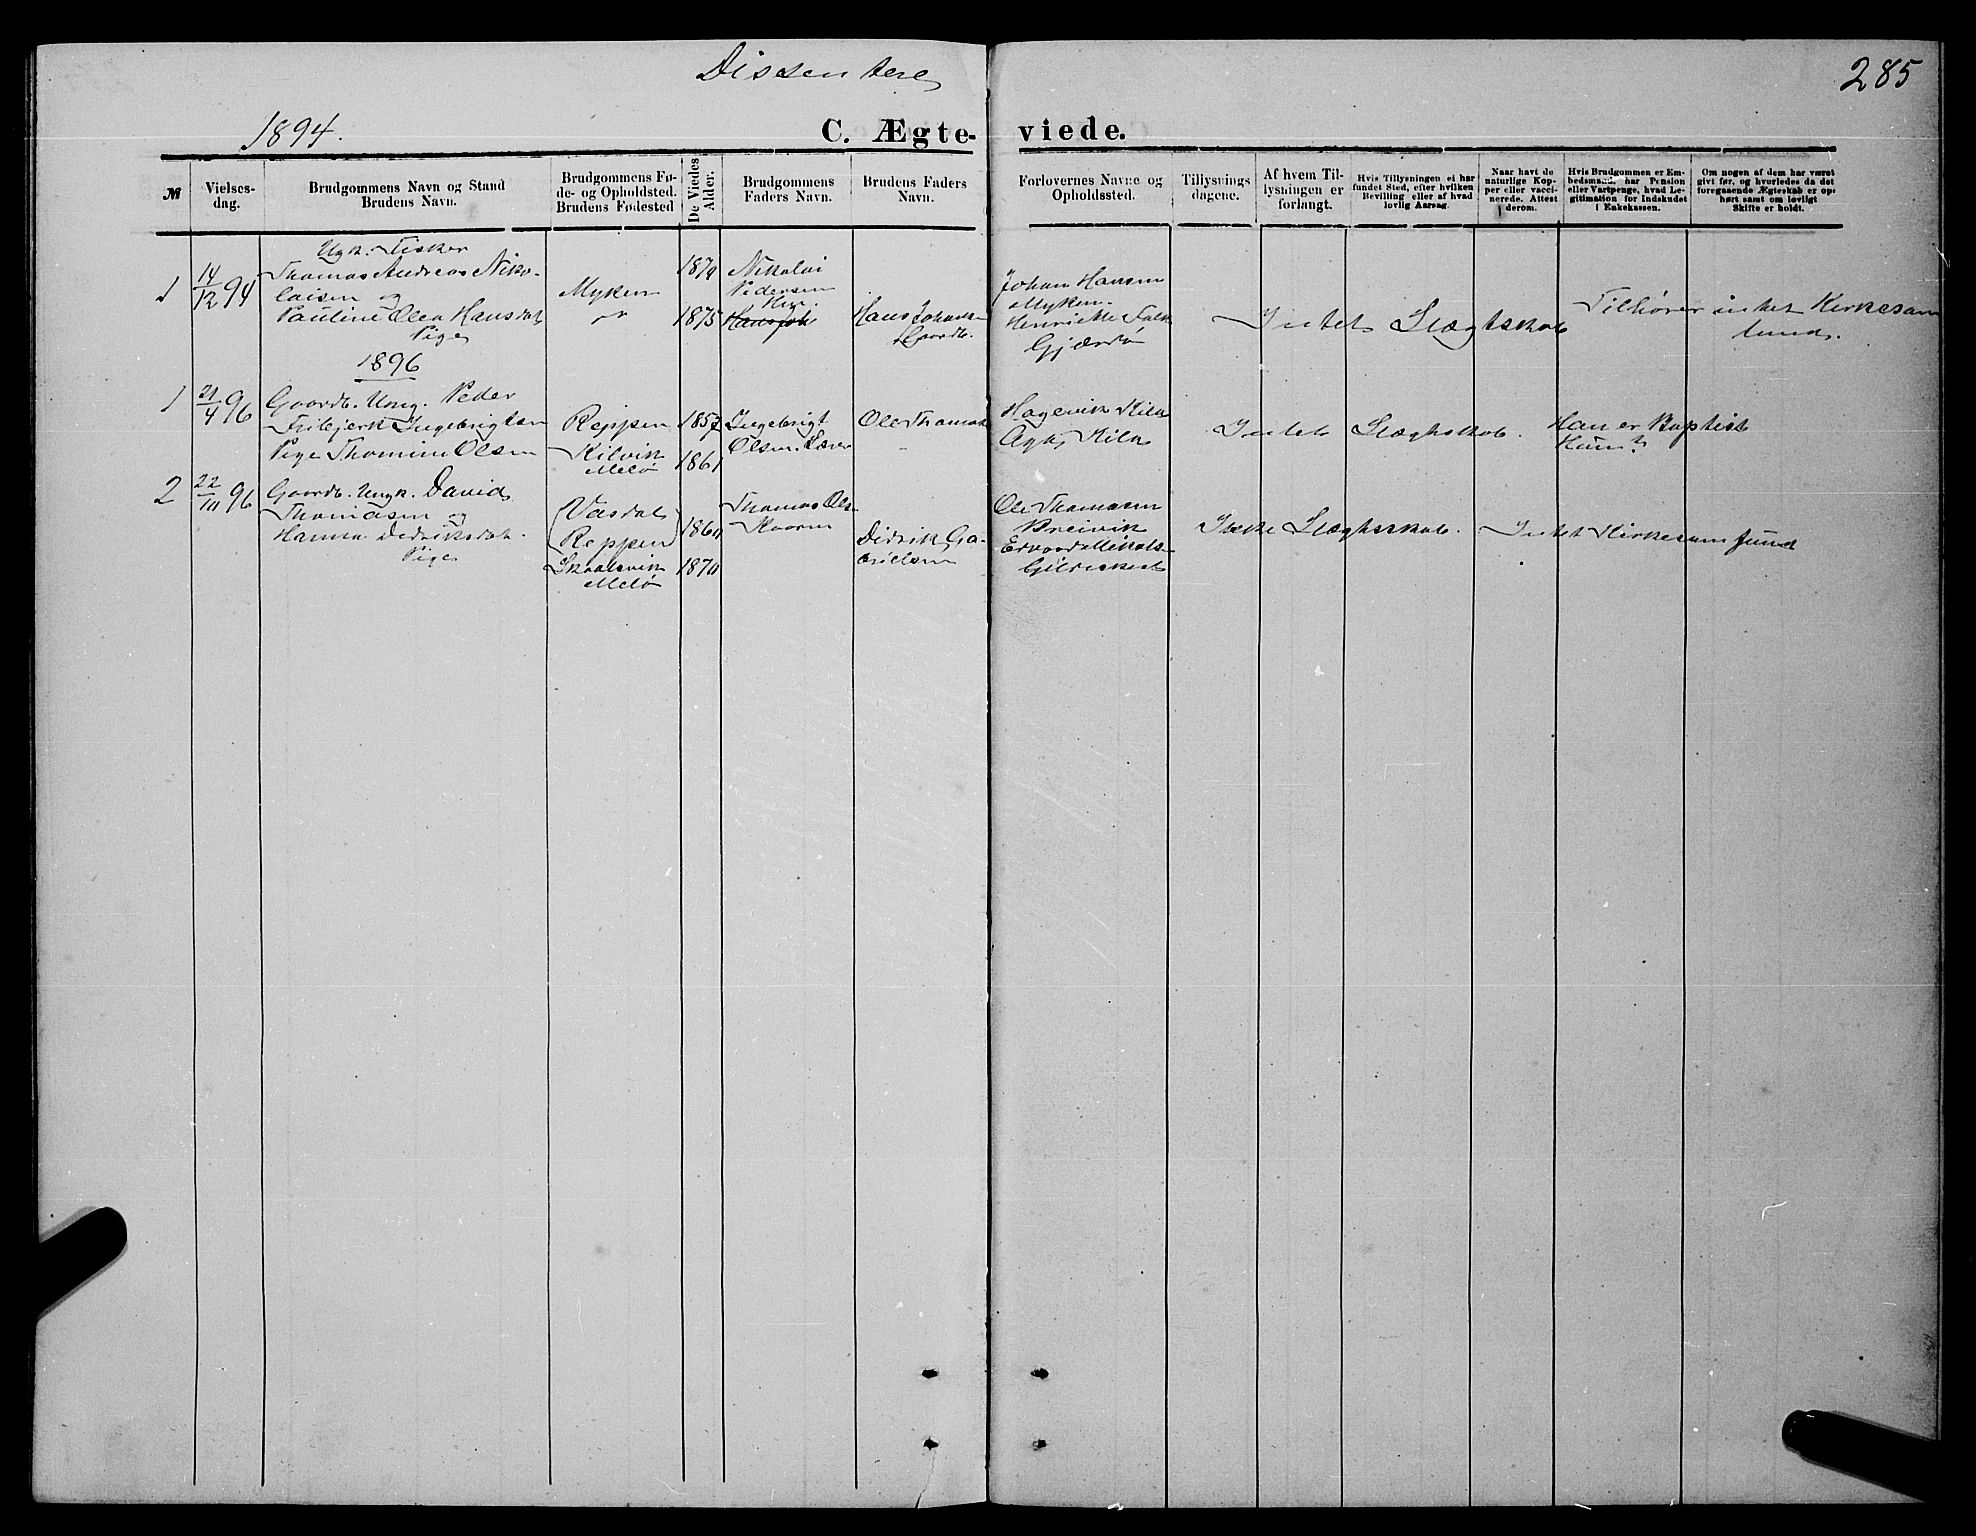 Dissentere
285
1894.
C. Ægte- viede.
№
Vielses-
dag.
Brudgommens Navn og Stand
Brudens Navn.
Brudgommens Fø-
de- og Opholdsted.
Brudens Fødested
De Viedes
Alder.
Brudgommens
Faders Navn.
Brudens Faders
Navn.
Forlovernes Navne og
Opholdssted.
Tillysnings
dagene.
Af hvem Til-
lysningen er
forlangt.
Hvis Tillysningen ei har
fundet Sted, efter hvilken
Bevilling eller af hvad
lovlig Aarsag.
Naar havt de
naturlige Kop-
per eller vacci-
nerede. Attest
derom.
Hvis Brudgommen er Em-
bedsmand, har Pension
eller Vartpenge, hvad Le-
gitimation for Indskudet
i Enkekassen.
Om nogen af dem har været
gift før, og hvorledes da det
foregaaende Ægteskab er op-
hørt samt om lovligt
Skifte er holdt.
1
14/12 94
Ugk. Fisker
Thomas Andreas Niko-
laisen og
Pauline Olea Hansdat
Pige
Myken
187
1875
Nikolai
Pedersen
Hans Joh
Hans Johans
Gaardb.
Johan Hansen
Myken.
Henrik Falk
Gjærø
Intet Slægtskab
Tilhører intet Kirkesam
fund.
1896
1
21/4 96
Gaardb. Ung. Peder
Ingebrigtsen
Pige Thomine Olsen
Reppen
Kilvik
Melø
1857
1861
Ingebrigt
Olsen.
Ole Thomas
Hagevik Kila
Kila
Intet Slægtskab.
Han er Baptist
Hun?
2
22/10 96
Gaardb. Ungk. David
Thomasen og
Hanna Dedriksdat.
Pige
Vasdal
Reppen
Skaalsvik
Melø
186
187
Thomas Ols
Didrik Ga-
brielsen
Ole Thomasen
Breivik
Gildeskaal
Ikke Slægtsskab.
Intet Kirkesamfund